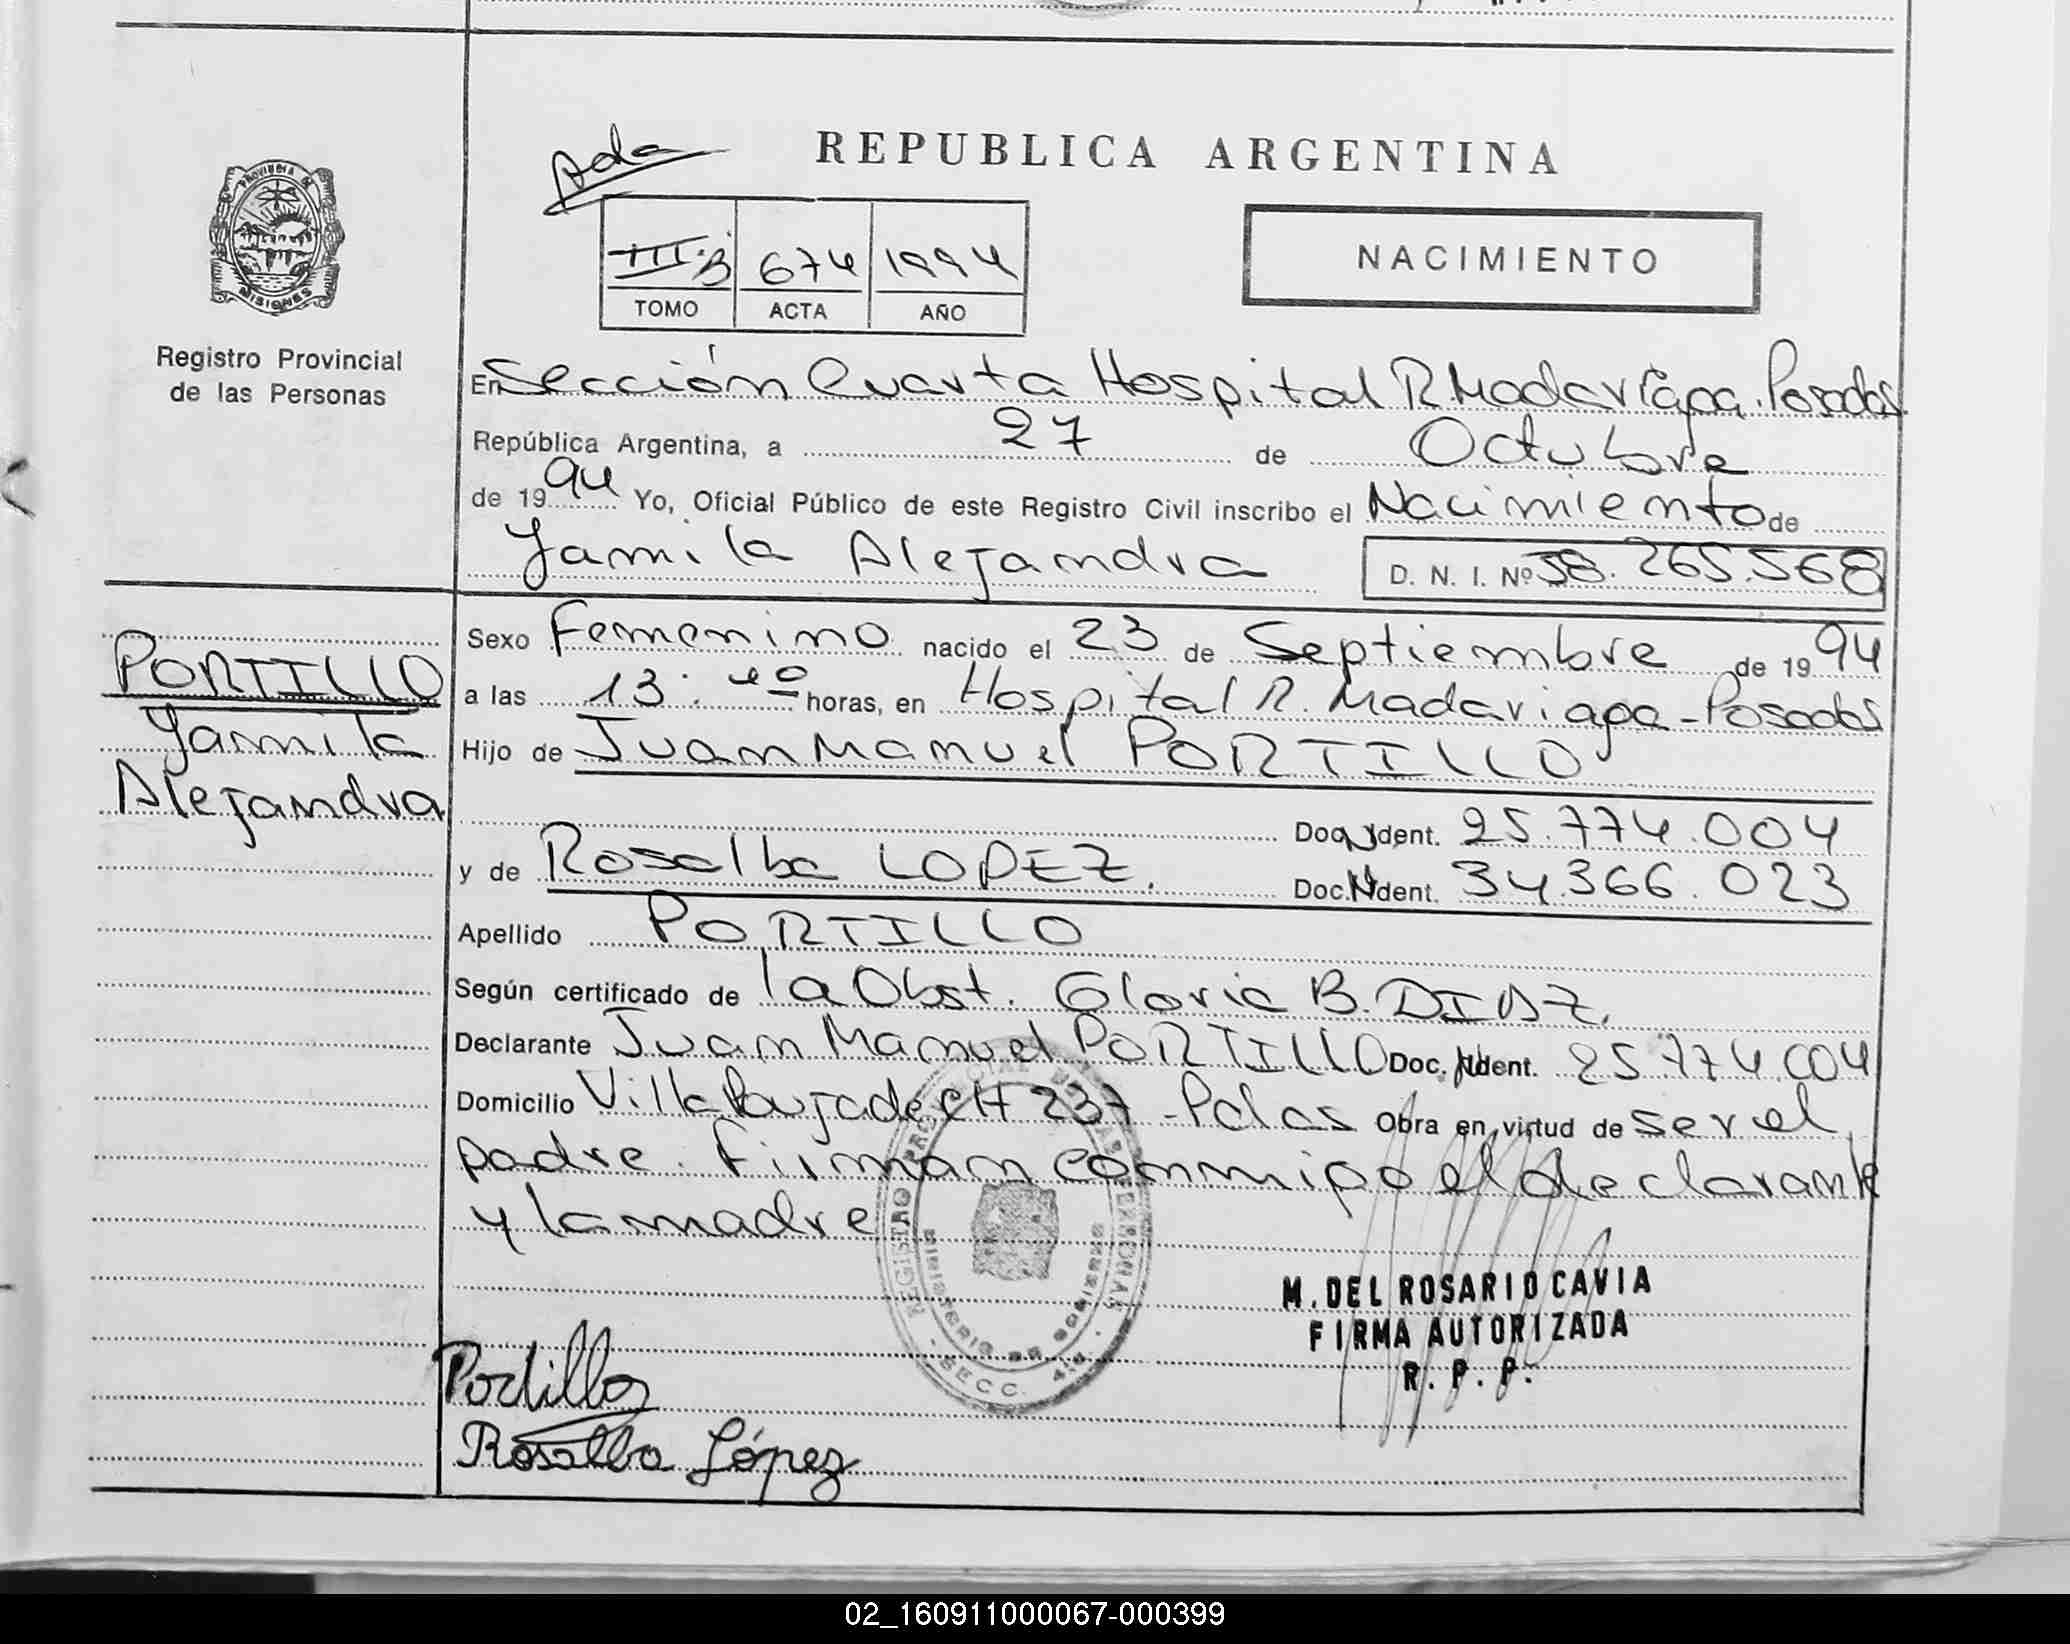 Ada
REPUBLICA ARGENTINA
PROVINCIA DE
MISIONES
III.B 674 1994
TOMO ACTA AÑO
NACIMIENTO
Registro Provincial
de las Personas
En Sección Cuarta Hospital R. Madariaga. Posadas
República Argentina, a 27 de Octubre
de 1994 Yo, Oficial Público de este Registro Civil inscribo el Nacimiento de
Yamila Alejandra D. N. I. Nº 38.265.568
PORTILLO
Yamila
Alejandra
Sexo Femenino nacido el 23 de Septiembre de 1994
a las 13: horas, en Hospital R. Madariaga - Posadas
Hijo de Juan Manuel PORTILLO
Doc. Ident. 25.774.004
y de Rosalba LOPEZ. Doc. Ident. 34.366.023
Apellido PORTILLO
Según certificado de la Obst. Gloria B. DIAZ.
Declarante Juan Manuel PORTILLO Doc. Ident. 25.774.004
Domicilio Villa Poujade CH 237 - Pdas Obra en virtud de ser el
padre. Firman conmigo el declarante
y la madre
REGISTRO PROVINCIAL DE LAS PERSONAS
MINISTERIO DE GOBIERNO
SECC. 4ta.
M. DEL ROSARIO CAVIA
FIRMA AUTORIZADA
R. P. P.
Portillo
Rosalba López
02_160911000067-000399